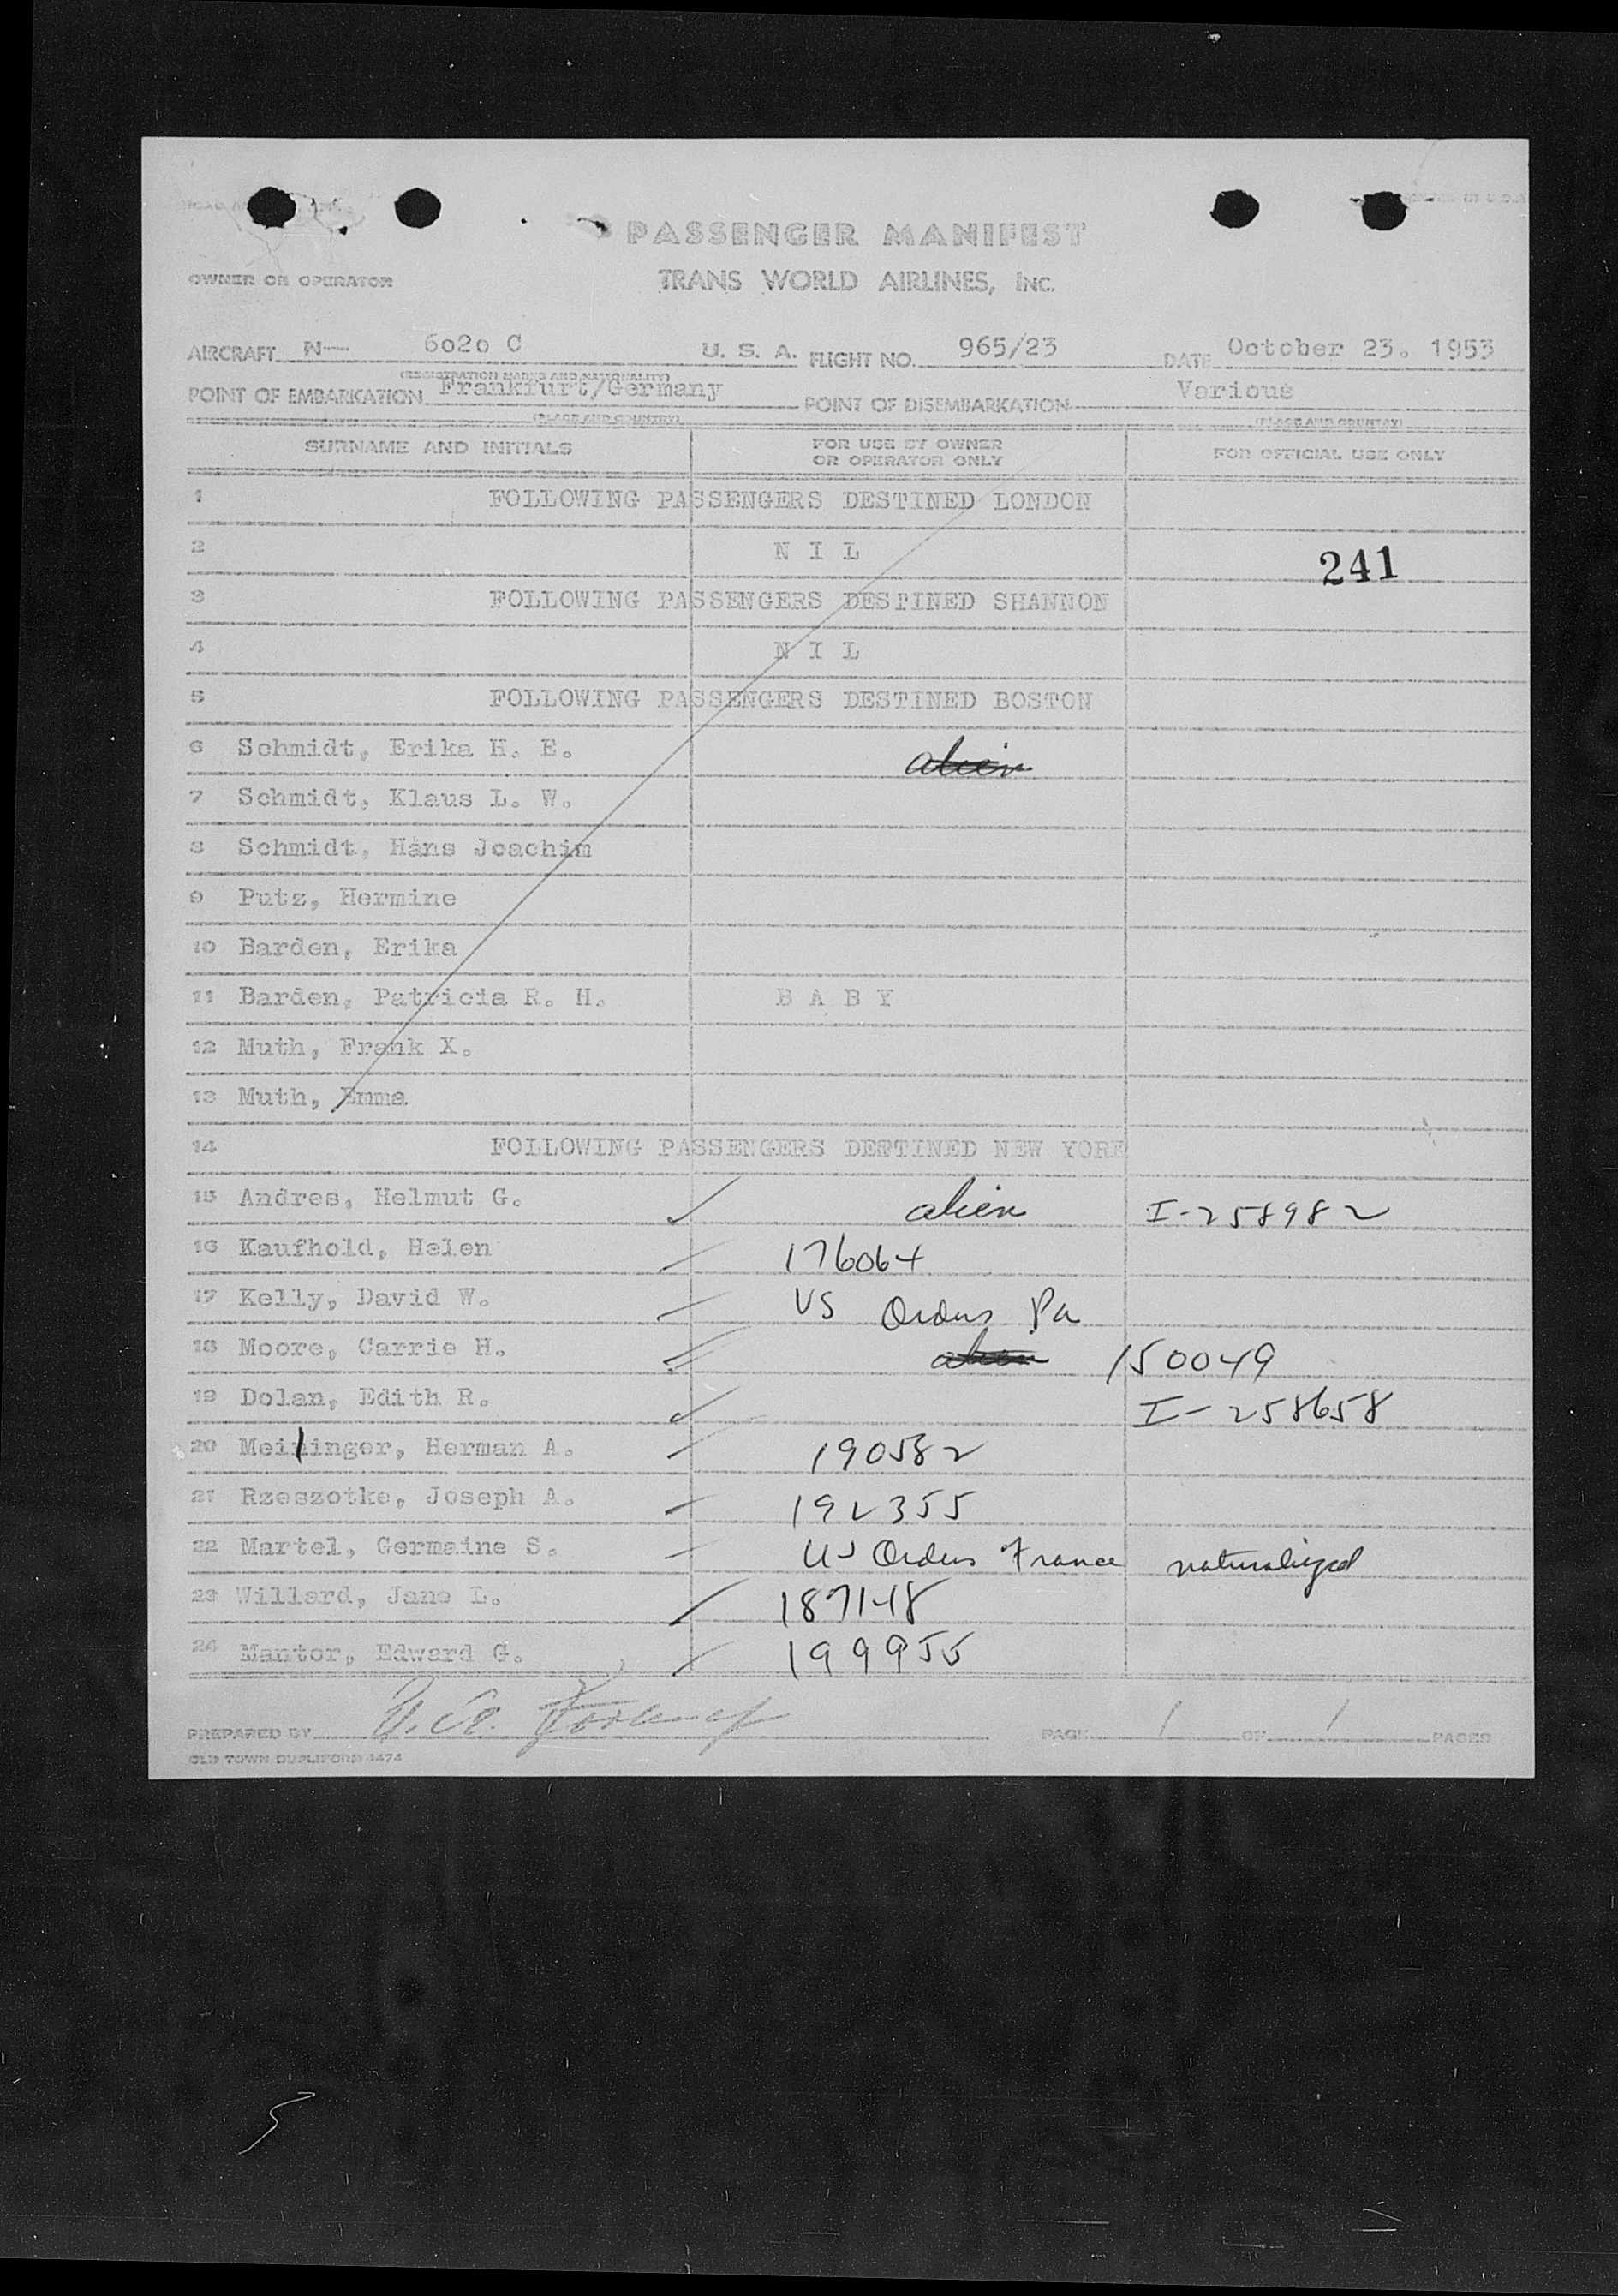 PASSENGER MANIFEST
OWNER OR OPERATOR TRANS WORLD AIRLINES, INC.
AIRCRAFT N— 6020 C U. S. A. FLIGHT NO. 965/23 DATE October 23. 1953
(REGISTRATION MARKS AND NATIONALITY)
POINT OF EMBARKATION Frankfurt/Germany POINT OF DISEMBARKATION Various
(PLACE AND COUNTRY) (PLACE AND COUNTRY)
SURNAME AND INITIALS FOR USE BY OWNER OR OPERATOR ONLY FOR OFFICIAL USE ONLY
1 FOLLOWING PASSENGERS DESTINED LONDON
2 N I L 241
3 FOLLOWING PASSENGERS DESTINED SHANNON
4 N I L
5 FOLLOWING PASSENGERS DESTINED BOSTON
6 Schmidt, Erika H. E. alien
7 Schmidt, Klaus L. W.
8 Schmidt, Hans Joachim
9 Putz, Hermine
10 Barden, Erika
11 Barden, Patricia R. H. B A B Y
12 Muth, Frank X.
13 Muth, Emma
14 FOLLOWING PASSENGERS DETTINED NEW YORK
15 Andres, Helmut G. ✓ alien I-258982
16 Kaufhold, Helen 176064
17 Kelly, David W. US Orders Pa
18 Moore, Carrie H. alien 150049
19 Dolan, Edith R. ✓ I-258658
20 Meininger, Herman A. 190582
21 Rzeszotke, Joseph A. 192355
22 Martel, Germaine S. US Orders France naturalized
23 Willard, Jane L. 187148
24 Mantor, Edward G. 199955
PREPARED BY PAGE 1 OF 1 PAGES
OLD TOWN DUPLIFORM 1474